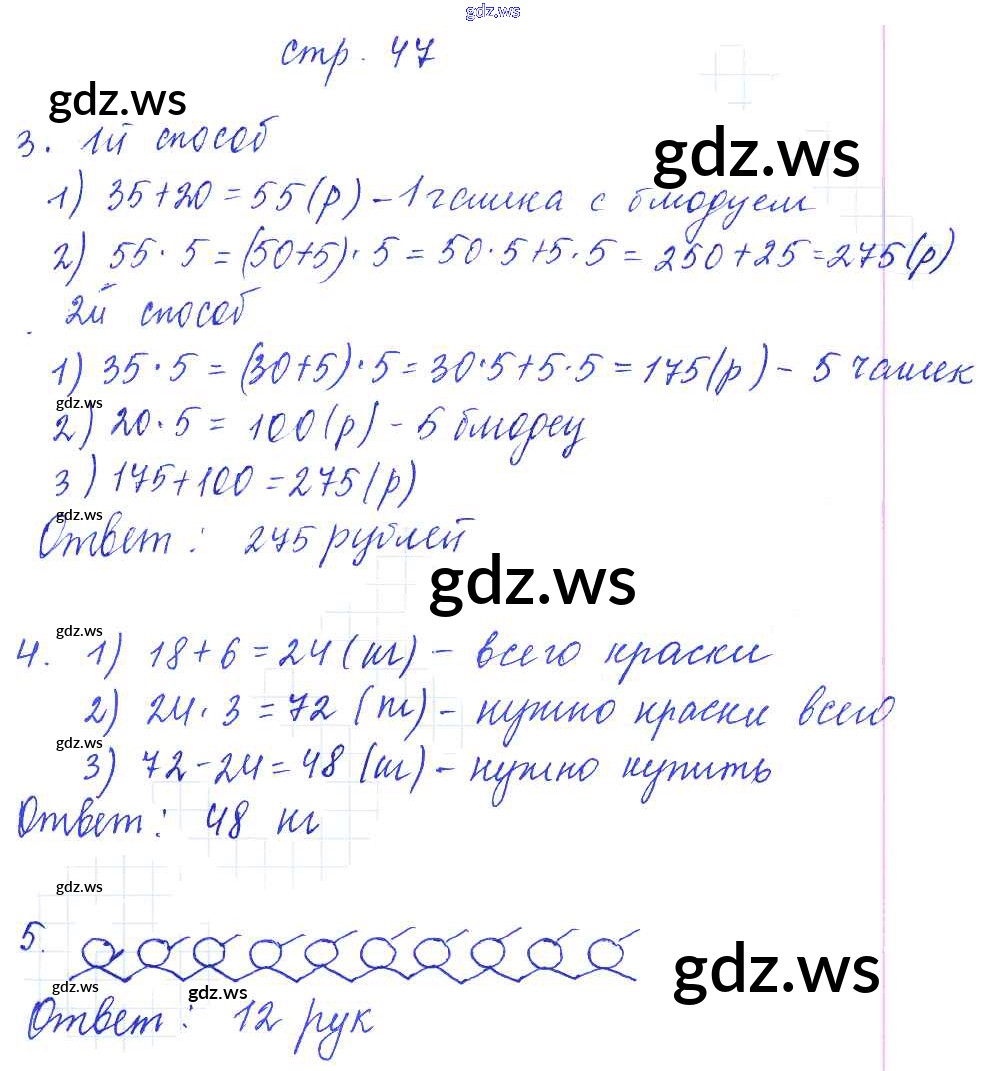 gdz.ws
стр. 47
gdz.ws
3. 1й способ
gdz.ws
1) 35+20=55(р) - 1 чашка с блюдцем
2) 55·5=(50+5)·5=50·5+5·5=250+25=275(р)
2й способ
1) 35·5=(30+5)·5=30·5+5·5=175(р) - 5 чашек
gdz.ws
2) 20·5=100(р) - 5 блюдец
3) 175+100=275(р)
gdz.ws
Ответ: 275 рублей
gdz.ws
gdz.ws
4. 1) 18+6=24(кг) - всего краски
2) 24·3=72(кг) - нужно краски всего
gdz.ws
3) 72-24=48(кг) - нужно купить
Ответ: 48 кг
gdz.ws
5.
gdz.ws
gdz.ws
gdz.ws
Ответ: 12 рук